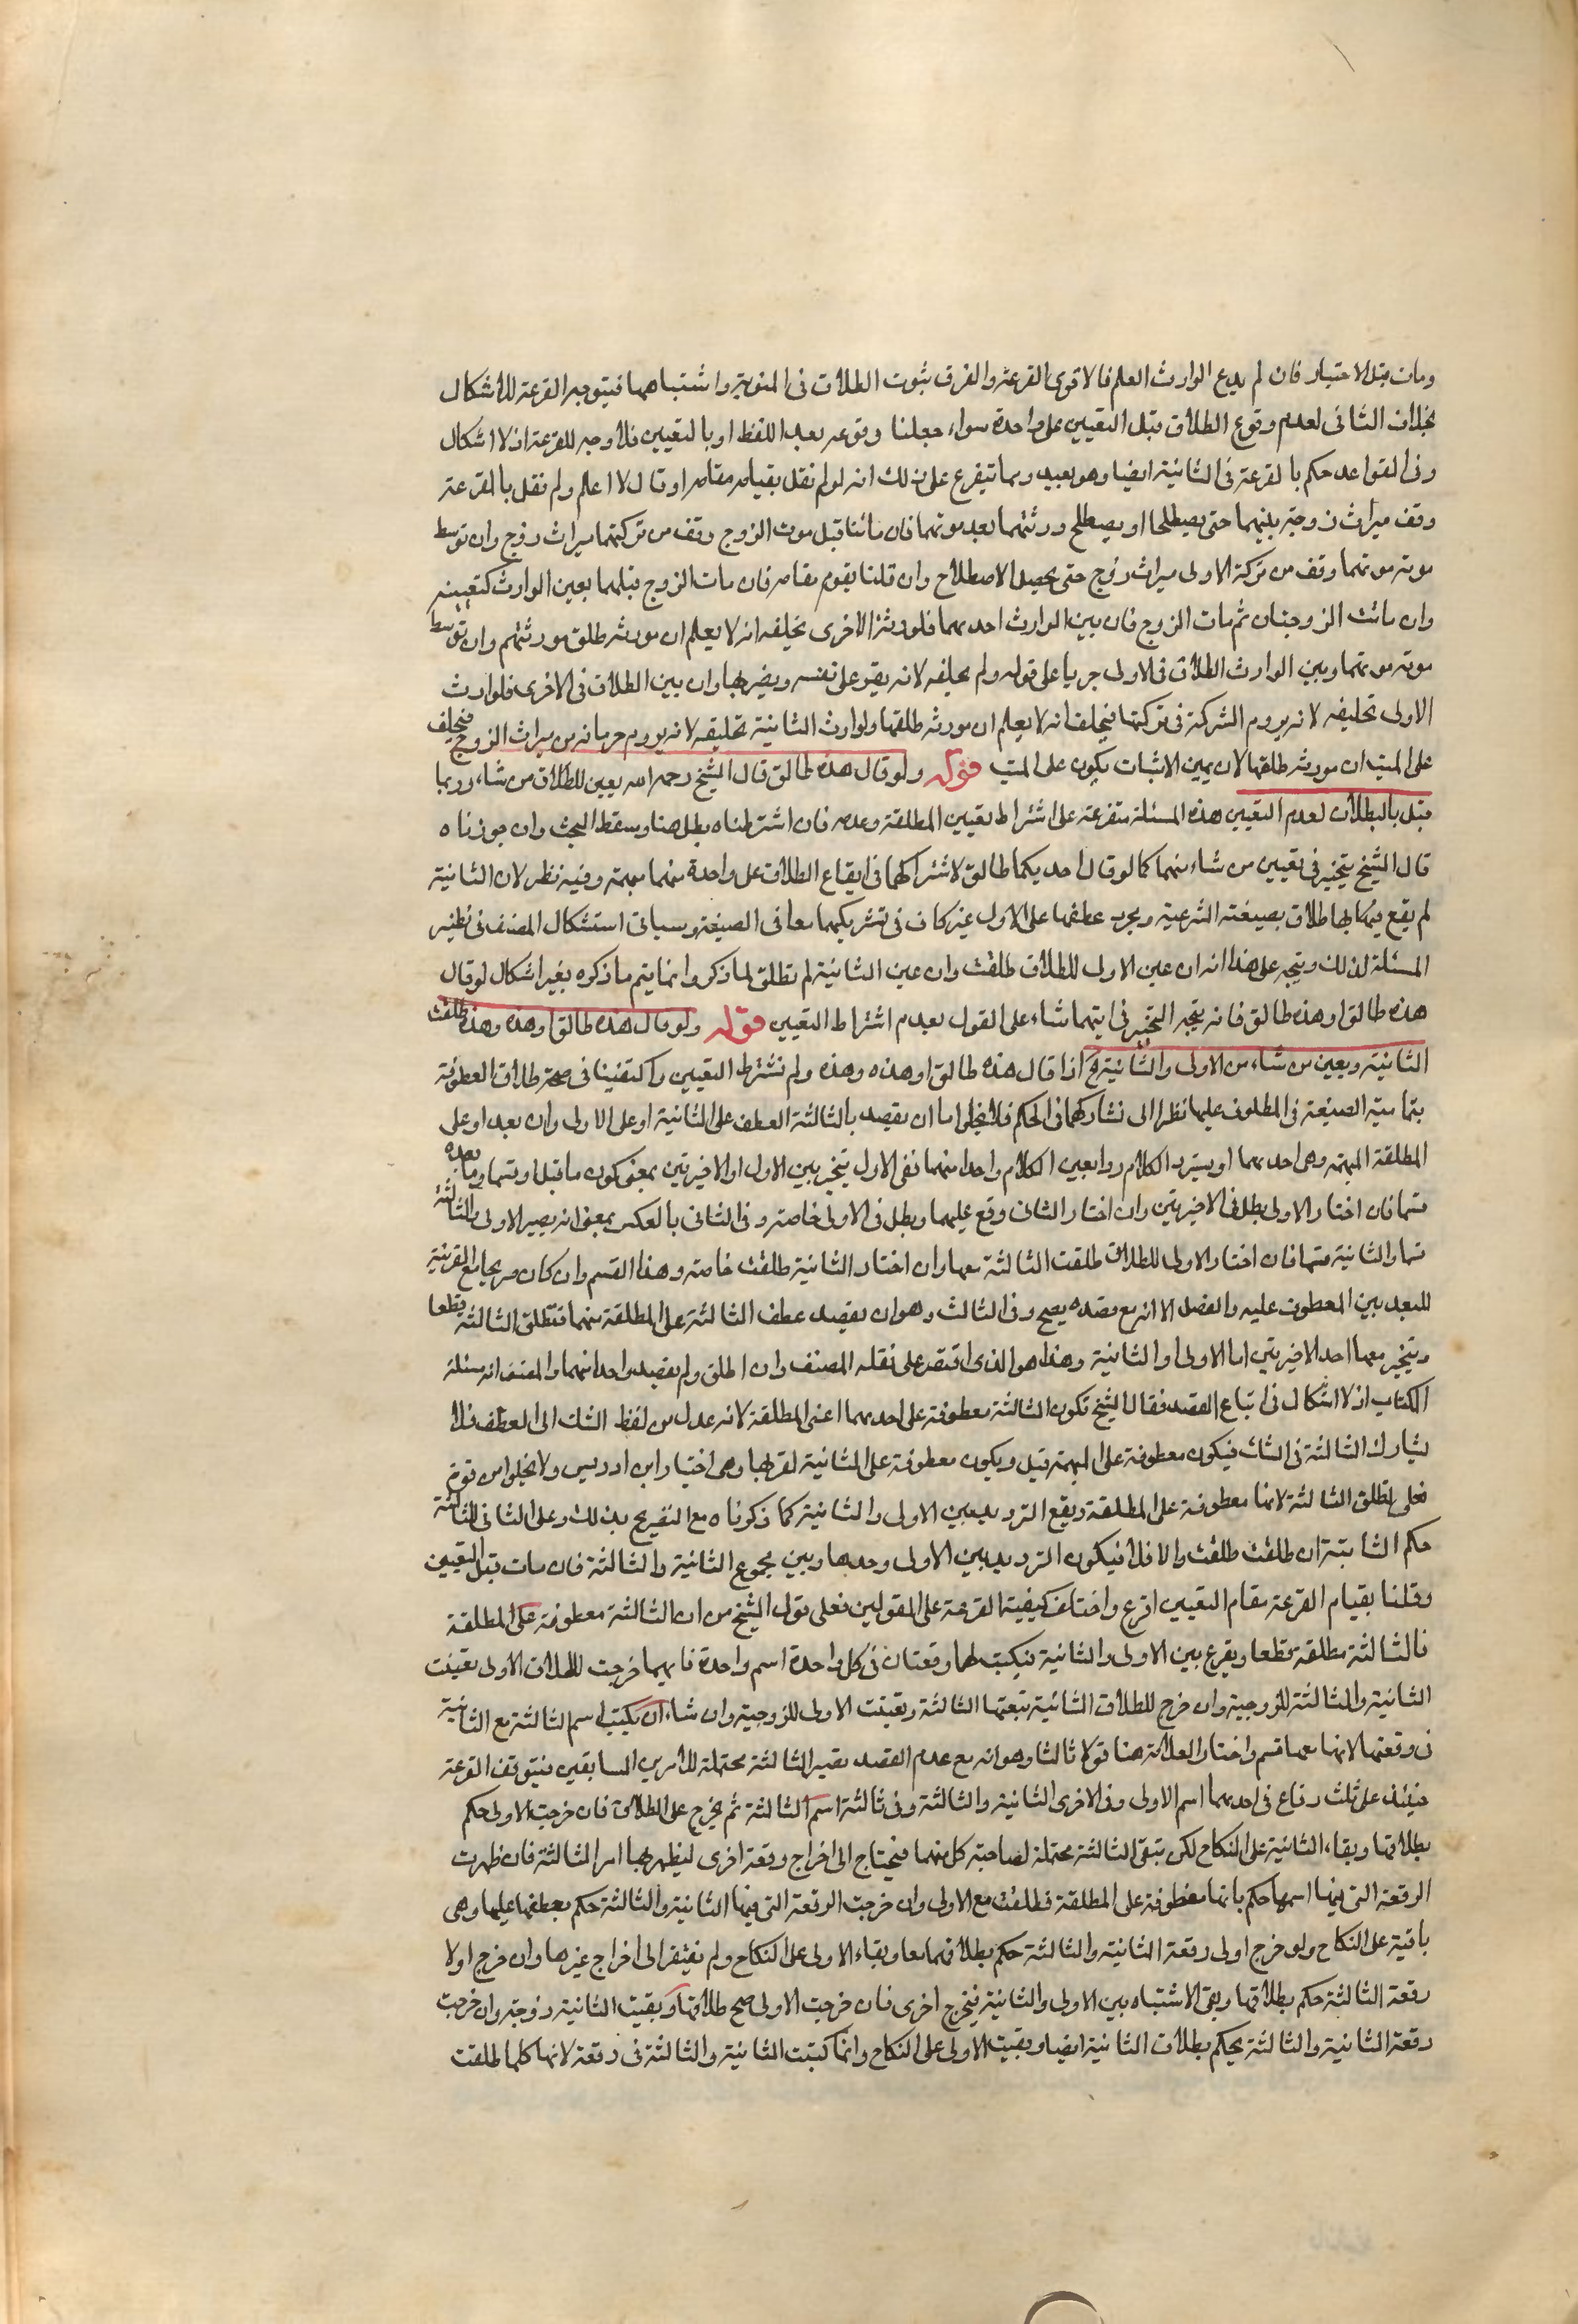 ومات قبل الاختيار فان لم يدع الوارث العلم فالاقوى القرعة والفرق ثبوت الطلاق فى المنوية واشتباهها فيتوجه القرعة للاشكال
بخلاف الثانى لعدم وقوع الطلاق قبل التعيين على واحدة سواء جعلنا وقوعه بعد اللفظ او بالتعيين فلا وجه للقرعة اذ لا اشكال
وفى القواعد حكم بالقرعة فى الثانية ايضا وهو بعيد ومما يتفرع على ذلك انه لو لم نقل بقيامه مقامه او قال لا اعلم ولم نقل بالقرعة
وقف ميراث زوجة بينهما حتى يصطلحا او يصطلح ورثتهما بعد موتهما فان ماتتا قبل موت الزوج وقف من تركتهما ميراث زوج وان توسط
موته موتهما وقف من تركة الاولى ميراث زوج حتى يحصل الاصطلاح وان قلنا يقوم مقامه فان مات الزوج قبلهما بعين الوارث كتعيينه
وان ماتت الزوجتان ثم مات الزوج فان بين الوارث احديهما فلورثة الاخرى تحليفه انه لا يعلم ان مورثه طلق مورثتهم وان توسط
موته موتهما وبين الوارث الطلاق فى الاولى جريا على قوله ولم يحلفه لانه يقر على نفسه ويضر بها وان بين الطلاق فى الاخرى فلوارث
الاولى تحليفه لانه يروم الشركة فى تركتها فيحلف انه لا يعلم ان مورثه طلقها ولوارث الثانية تحليفه لانه يروم حرمانه من ميراث الزوج فيحلف
على البت ان مورثه طلقها لان يمين الاثبات يكون على البت قوله ولو قال هذه طالق قال الشيخ رحمه الله يعين للطلاق من شاء وربما
قيل بالبطلان لعدم التعيين هذه المسئلة متفرعة على اشتراط تعيين المطلقة وعدمه فان اشترطناه بطل هنا وسقط البحث وان جوزناه
قال الشيخ يتخير فى تعيين من شاء منهما كما لو قال احديكما طالق لاشتراكهما فى ايقاع الطلاق على واحدة منهما مبهمة وفيه نظر لان الثانية
لم يقع بها طلاق بصيغته الشرعية ومجرد عطفها على الاولى غير كاف فى تشريكهما معا فى الصيغة وسياتى استشكال المصنف فى نظير
المسئلة لذلك ويتجه على هذا انه ان عين الاولى للطلاق طلقت وان عين الثانية لم تطلق لما ذكر وانما يتم ما ذكره بغير اشكال لو قال
هذه طالق او هذه طالق فانه يتجه التخيير فى ايتهما شاء على القول بعدم اشتراط التعيين قوله ولو قال هذه طالق او هذه وهذه طلقت
الثانية ويعين من شاء من الاولى والثانية اذا قال هذه طالق او هذه وهذه ولم نشترط التعيين واكتفينا فى صحة طلاق المعطوفة
بتمامية الصيغة فى المعطوف عليها نظرا الى تشاركهما فى الحكم فلا يخلو اما ان يقصد بالثالثة العطف على الثانية او على الاولى وان بعد او على
المطلقة المبهمة وهى احديهما او يسترد الكلام رابعين الكلام واحدا منهما ففى الاول يتخير بين الاولى او الاخيرتين بمعنى كون ما قبل او قسما وما بعده
قسما فان اختار الاولى بطل فى الاخيرتين وان اختار الثانى وقع عليهما وبطل فى الاولى خاصة وفى الثانى بالعكس بمعنى انه يصير الاولى والثالثة
قسما والثانية قسما فان اختار الاولى للطلاق طلقت الثالثة معها وان اختار الثانية طلقت خاصة وهذا القسم وان كان صريحا مع القرينة
للبعد بين المعطوف عليه والفصل الا انه مع قصده يصح وفى الثالث وهو ان يقصد عطف الثالثة على المطلقة منهما فتطلق الثالثة قطعا
ويتخير معها احد الاخيرتين اما الاولى او الثانية وهذا هو الذى اقتصر على نقله المصنف وان اطلق ولم يقصد واحدا منهما والمصنف انه مسئلة
الكتاب اذ لا اشكال فى اتباع القصد فقال الشيخ تكون الثالثة معطوفة على احديهما اعنى المطلقة لانه عدل من لفظ الشك الى العطف فلا
تشارك الثالثة فى الشك فيكون معطوفة على المبهمة قيل ويكون معطوفة على الثانية لقربها وهى اختيار ابن ادريس ولا يخلو من قوة
فعلى تطلق الثالثة لانها معطوفة على المطلقة ويقع الترديد بين الاولى والثانية كما ذكرناه مع التصريح بذلك وعلى الثانى للثالثة
حكم الثانية ان طلقت طلقت والا فلا فيكون الترديد بين الاولى وحدها وبين مجموع الثانية والثالثة فان مات قبل التعيين
وقلنا بقيام القرعة مقام التعيين اقرع واختلف كيفية القرعة على القولين فعلى قول الشيخ من ان الثالثة معطوفة على المطلقة
فالثالثة مطلقة قطعا ويقرع بين الاولى والثانية فيكتب لهما رقعتان فى كل واحدة اسم واحدة فايهما خرجت للطلاق الاولى تعينت
الثانية والثالثة للزوجية وان خرج للطلاق الثانية تبعتها الثالثة وتعينت الاولى للزوجية وان شاء ان يكتب اسم الثالثة مع الثانية
فى رقعتها لانهما معا قسم واختار العلامة هنا قولا ثالثا وهو انه مع عدم القصد تصير الثالثة محتملة للامرين السابقين فيتوقف القرعة
حينئذ على ثلث رقاع فى احديهما اسم الاولى وفى الاخرى الثانية والثالثة وفى ثالثة اسم الثالثة ثم يخرج على الطلاق فان خرجت الاولى حكم
بطلاقها وبقاء الثانية على النكاح لكن تبقى الثالثة محتملة لمصاحبة كل منهما فيحتاج الى اخراج رقعة اخرى ليظهر بها امر الثالثة فان ظهرت
الرقعة التى فيها اسمها حكم بانها معطوفة على المطلقة فطلقت مع الاولى وان خرجت الرقعة التى فيها الثانية والثالثة حكم بعطفها عليها وهى
باقية على النكاح ولو خرج اولى رقعة الثانية والثالثة حكم بطلاقهما معا وبقاء الاولى على النكاح ولم نفتقر الى اخراج غيرها وان خرج اولا
رقعة الثالثة حكم بطلاقها وبقى الاشتباه بين الاولى والثانية فيخرج اخرى فان خرجت الاولى صح طلاقها وبقيت الثانية زوجة وان خرجت
رقعة الثانية والثالثة يحكم بطلاق الثانية ايضا وبقيت الاولى على النكاح وانما كتبت الثانية والثالثة فى رقعة لانها كلما طلقت